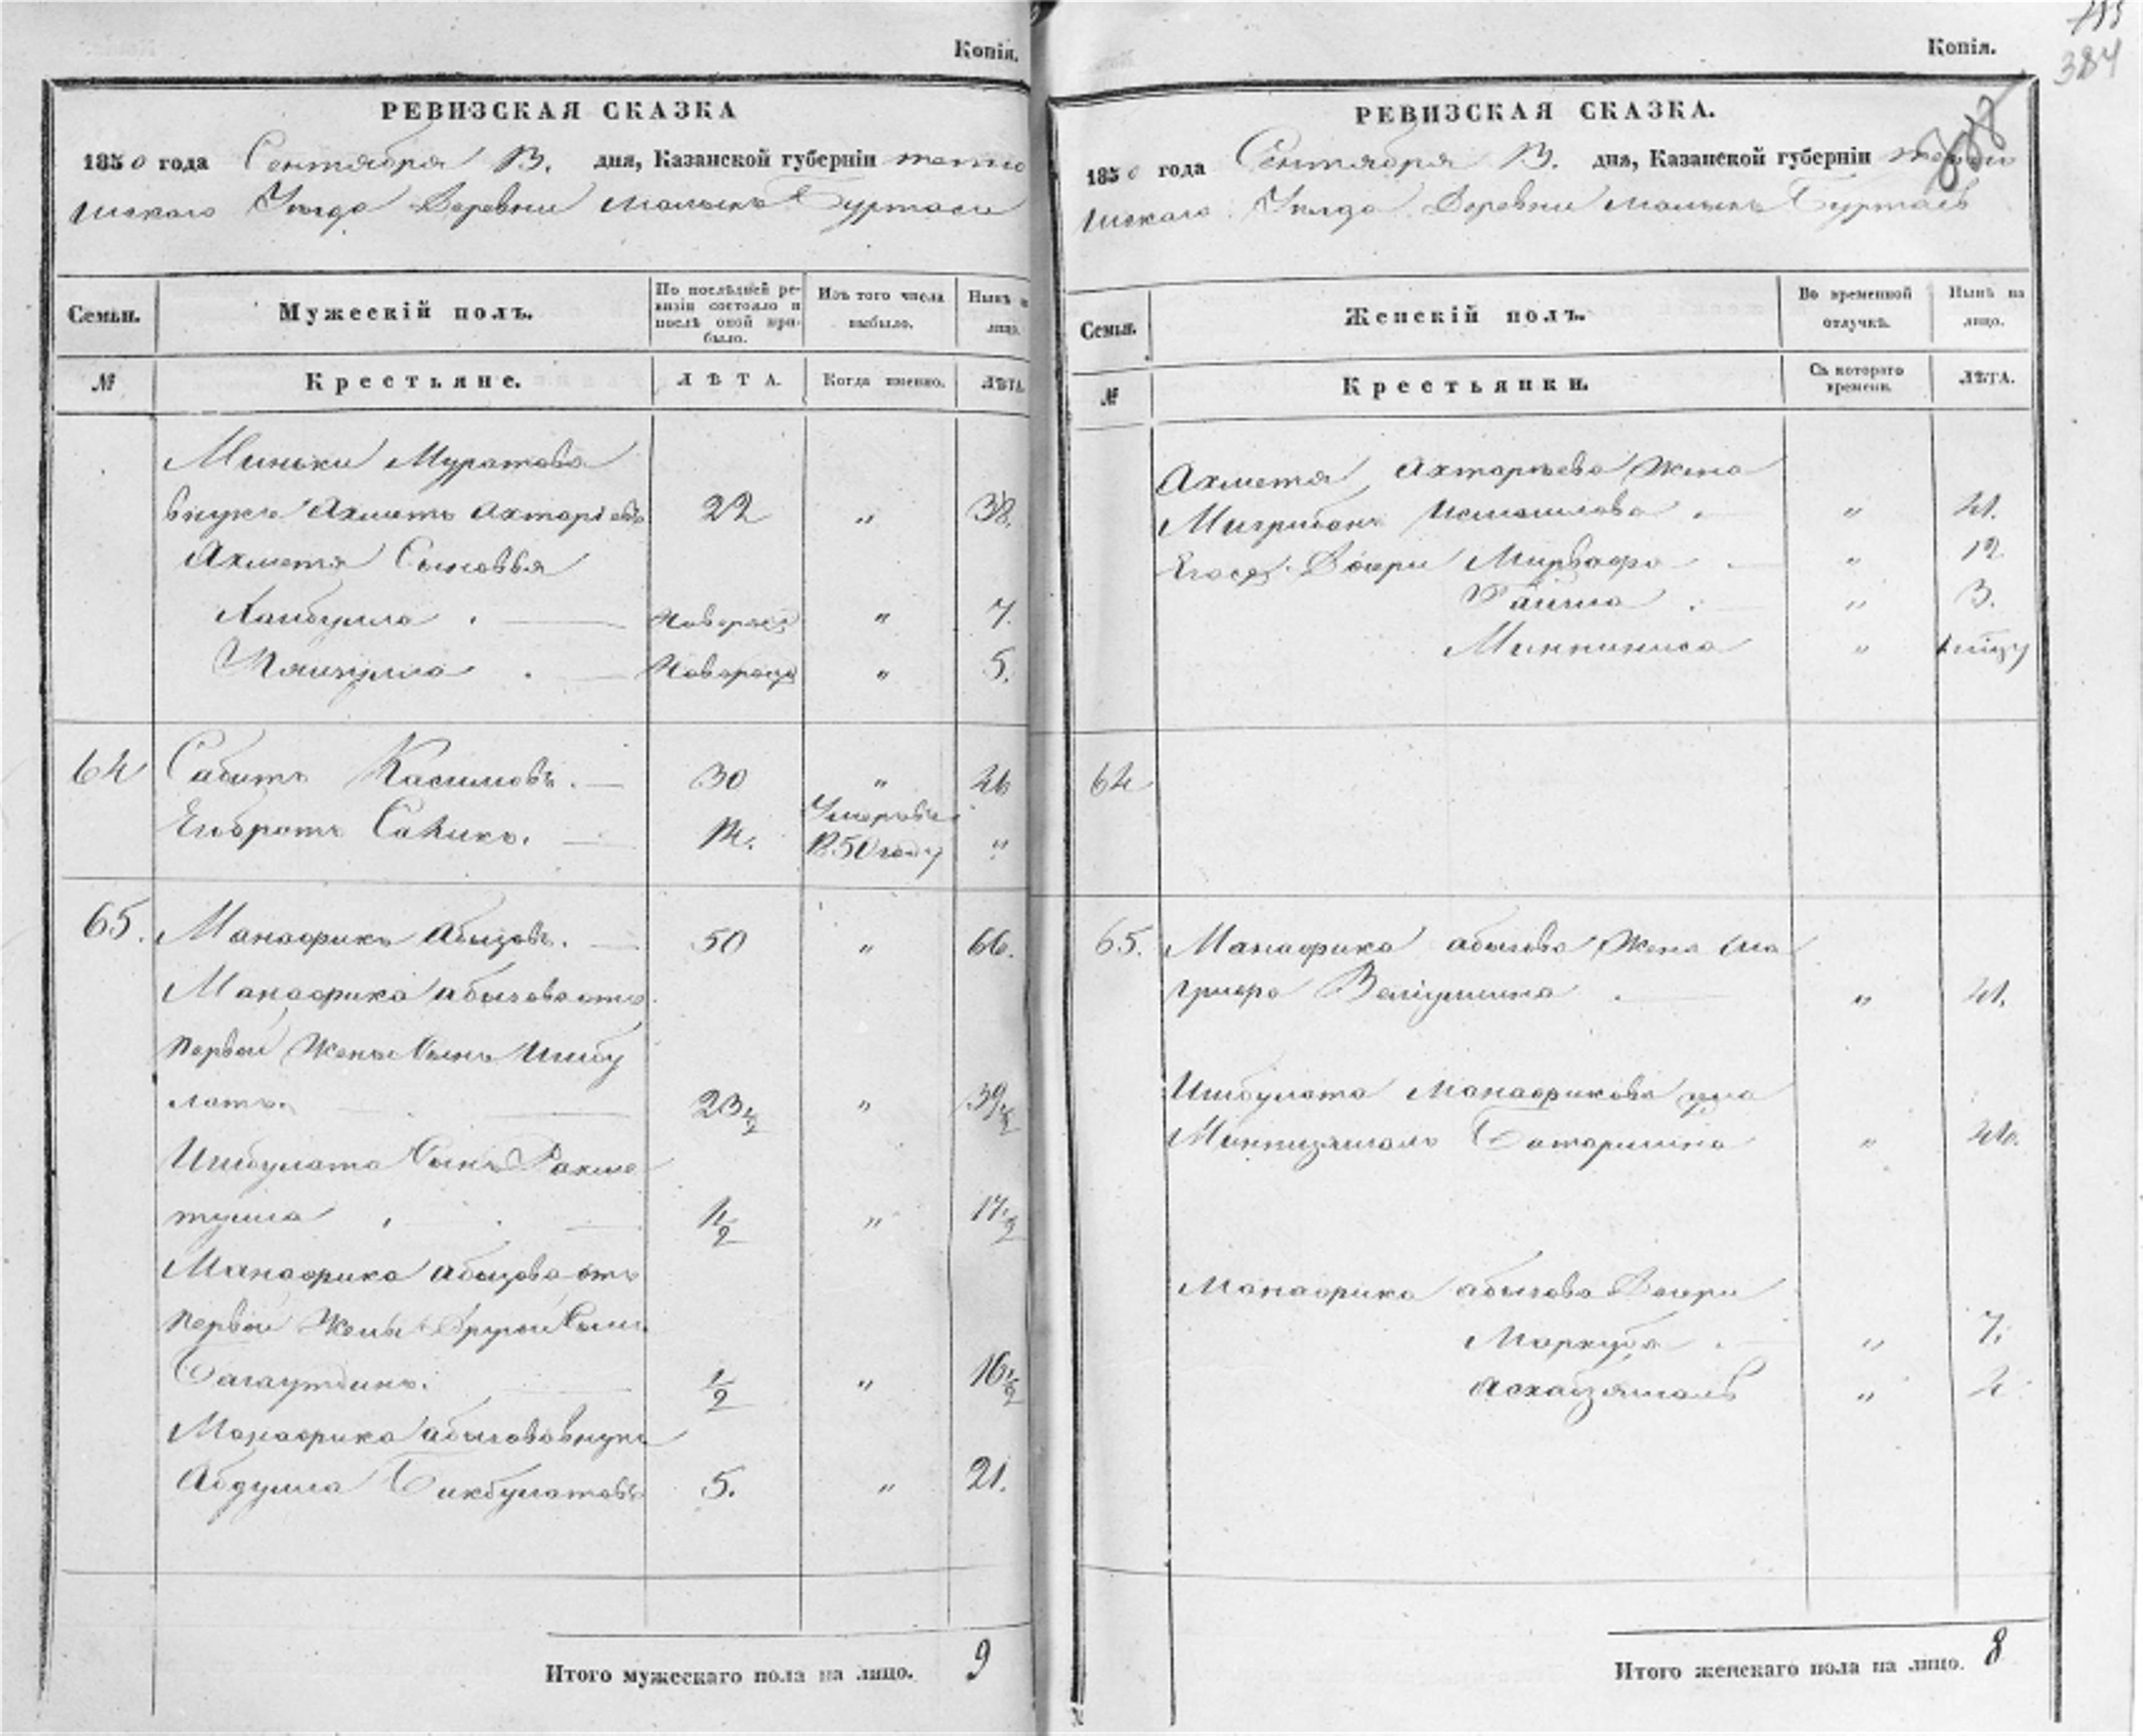 Копія.
РЕВИЗСКАЯ СКАЗКА
1850 года Сентября 13. дня, Казанской губерніи тетю
шскаго Уѣзда Деревни Малыхъ Буртасъ
Семьи.
Мужескій полъ.
По послѣдней ре-
визіи состояло и
послѣ оной при-
было.
Изъ того числа
выбыло.
Нынѣ на
лицо.
№
Крестьяне.
ЛѢТА.
Когда именно.
ЛѢТА
Миньки Муратова
внукъ Ахметъ Ахтаріевъ 22 " 38.
Ахметя Сыновья
" 7.
" 5.
64 Сабитъ Касимовъ. 30 " 46
Умеръ въ
Егобратъ Садикъ. 14. 1850 году "
65. Манафикъ Абызовъ. 50 " 66.
Манафика Абызова отъ
первой Жены Сынъ Ишбу
латъ. 23½ " 39½
Ишбулата Сынъ Рахме
тулла 1½ " 17½
Манафика Абызова отъ
первой Жены Другой Сынъ
Багаутдинъ. ½ " 16½
Манафика Абызова внукъ
Абдулла Бикбулатовъ 5. " 21.
Итого мужескаго пола на лицо. 9
Копія.
384
РЕВИЗСКАЯ СКАЗКА.
1850 года Сентября 13. дня, Казанской губерніи тетю
шскаго Уѣзда Деревни Малыхъ Буртасъ
Семьи.
Женскій полъ.
Во временной
отлучкѣ.
Нынѣ на
лицо.
№
Крестьянки.
Съ котораго
времени.
ЛѢТА.
Ахметя Ахтаріева Жена
Исмаилова " 41.
Дочери " 12
" 3.
Минниниса "
64
65. Манафика Абызова Жена Ма
" 41.
Ишбулата Манафикова жена
Миннизямалъ Батаршина " 46.
Манафика Абызова Дочери
" 7.
"
Итого женскаго пола на лицо. 8